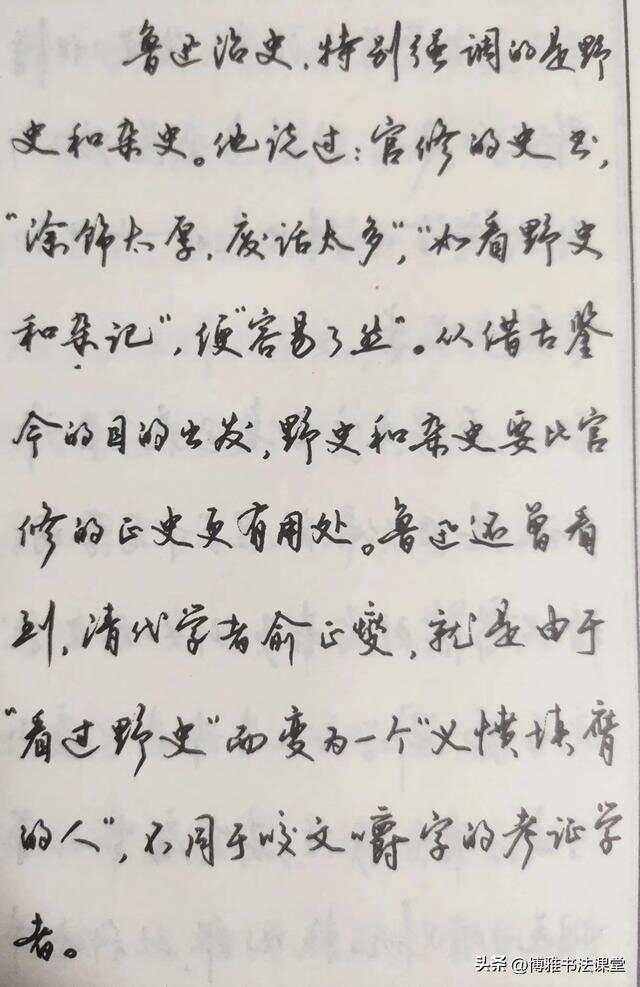 鲁迅治史，特别强调的是野
史和杂史。他说过：官修的史书，
“涂饰太厚，废话太多”，“如看野史
和杂记”，便“容易了然”。从借古鉴
今的目的出发，野史和杂史要比官
修的正史更有用处。鲁迅还曾看
到，清代学者俞正燮，就是由于
“看过野史”而变为一个“义愤填膺
的人”，不同于咬文嚼字的考证学
者。
头条@博雅书法课堂